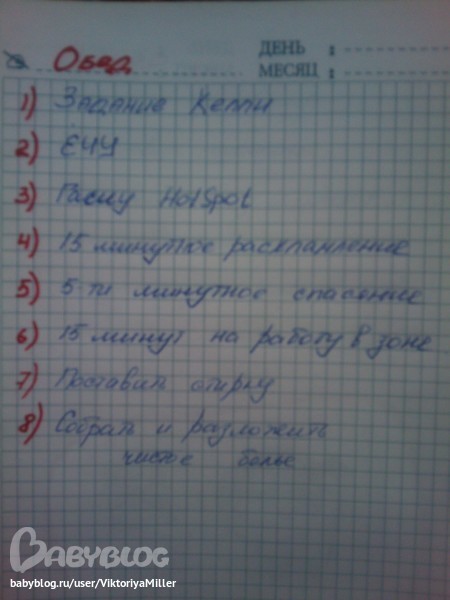 Обед
ДЕНЬ :
МЕСЯЦ :
1) Задание Келли
2) ЕЧУ
3) HotSpot
4) 15 минутное расхламление
5) 5-ти минутное спасение
6) 15 минут на работу в зоне
7) Поставить стирку
8) Собрать и разложить
чистое белье
BABYBLOG
babyblog.ru/user/ViktoriyaMiller